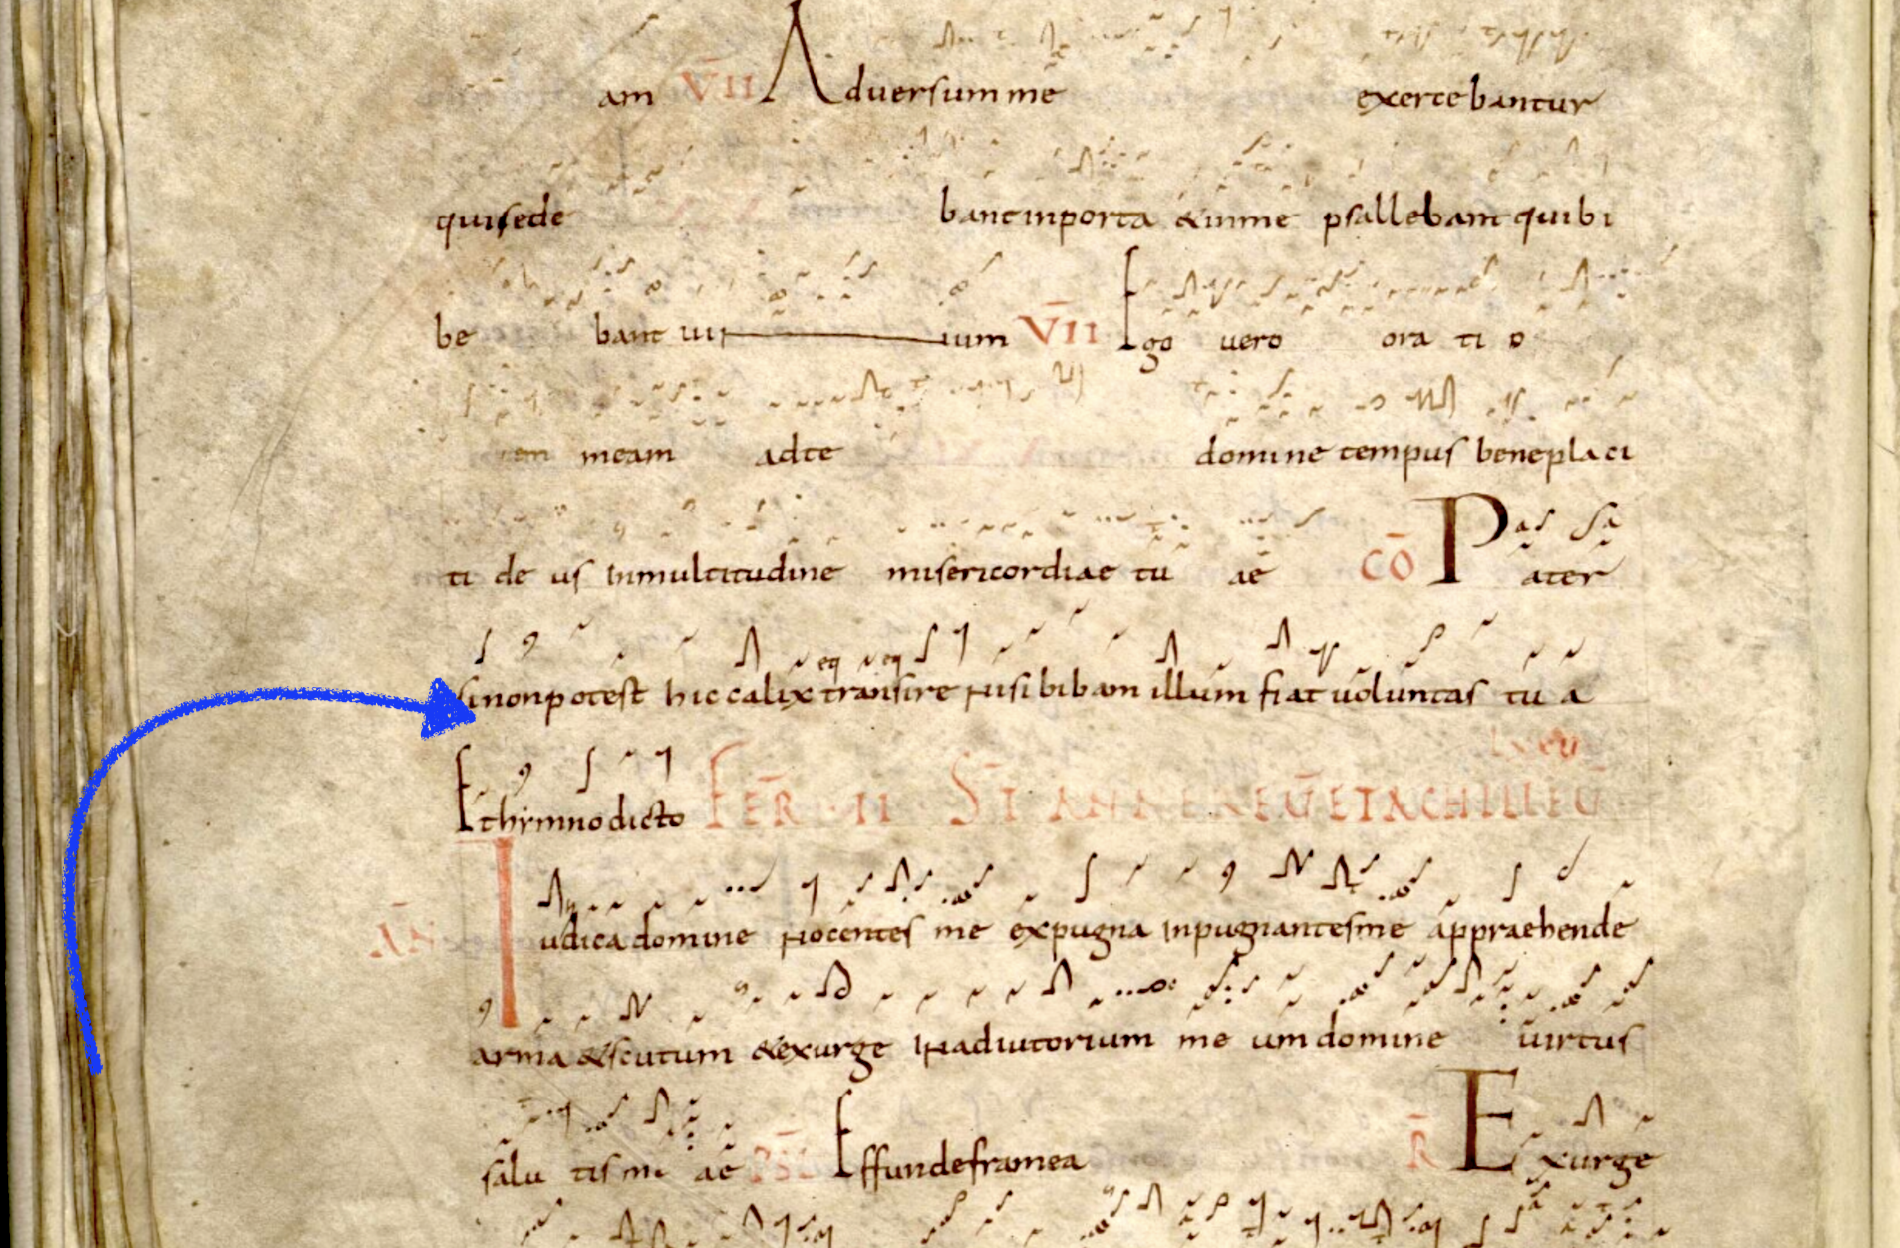 am VII Adversum me exercebantur
qui sede bant in porta & in me psallebant qui bi
be bant ui num VII Ego vero ora ti o
nem meam ad te domine tempus beneplaci
ti de us In multitudine misericordiae tu ae CO Pater
si non potest hic calix transire Nisi bibam illum fiat voluntas tu a
Et hymno dicto FER II
AN Iudica domine Nocentes me expugna Inpugnantes me appraehende
arma & scutum & exurge IN adiutorium me um domine virtus
salu tis me ae PSL Effunde framea R Exurge